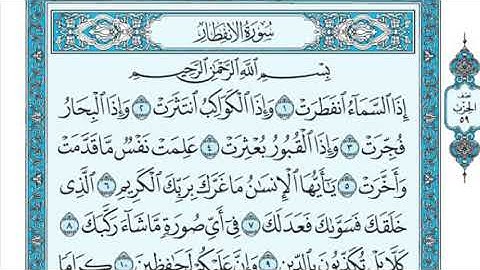 سُورَةُ الِانفِطَارِ
بِسْمِ اللَّهِ الرَّحْمَٰنِ الرَّحِيمِ
إِذَا السَّمَاءُ انفَطَرَتْ ١ وَإِذَا الْكَوَاكِبُ انتَثَرَتْ ٢ وَإِذَا الْبِحَارُ
فُجِّرَتْ ٣ وَإِذَا الْقُبُورُ بُعْثِرَتْ ٤ عَلِمَتْ نَفْسٌ مَّا قَدَّمَتْ
وَأَخَّرَتْ ٥ يَٰأَيُّهَا الْإِنسَٰنُ مَا غَرَّكَ بِرَبِّكَ الْكَرِيمِ ٦ الَّذِي
خَلَقَكَ فَسَوَّىٰكَ فَعَدَلَكَ ٧ فِي أَيِّ صُورَةٍ مَّا شَاءَ رَكَّبَكَ ٨
كَلَّا بَلْ تُكَذِّبُونَ بِالدِّينِ ٩ وَإِنَّ عَلَيْكُمْ لَحَٰفِظِينَ ١٠ كِرَامًا
نصف
الحزب
٥٩